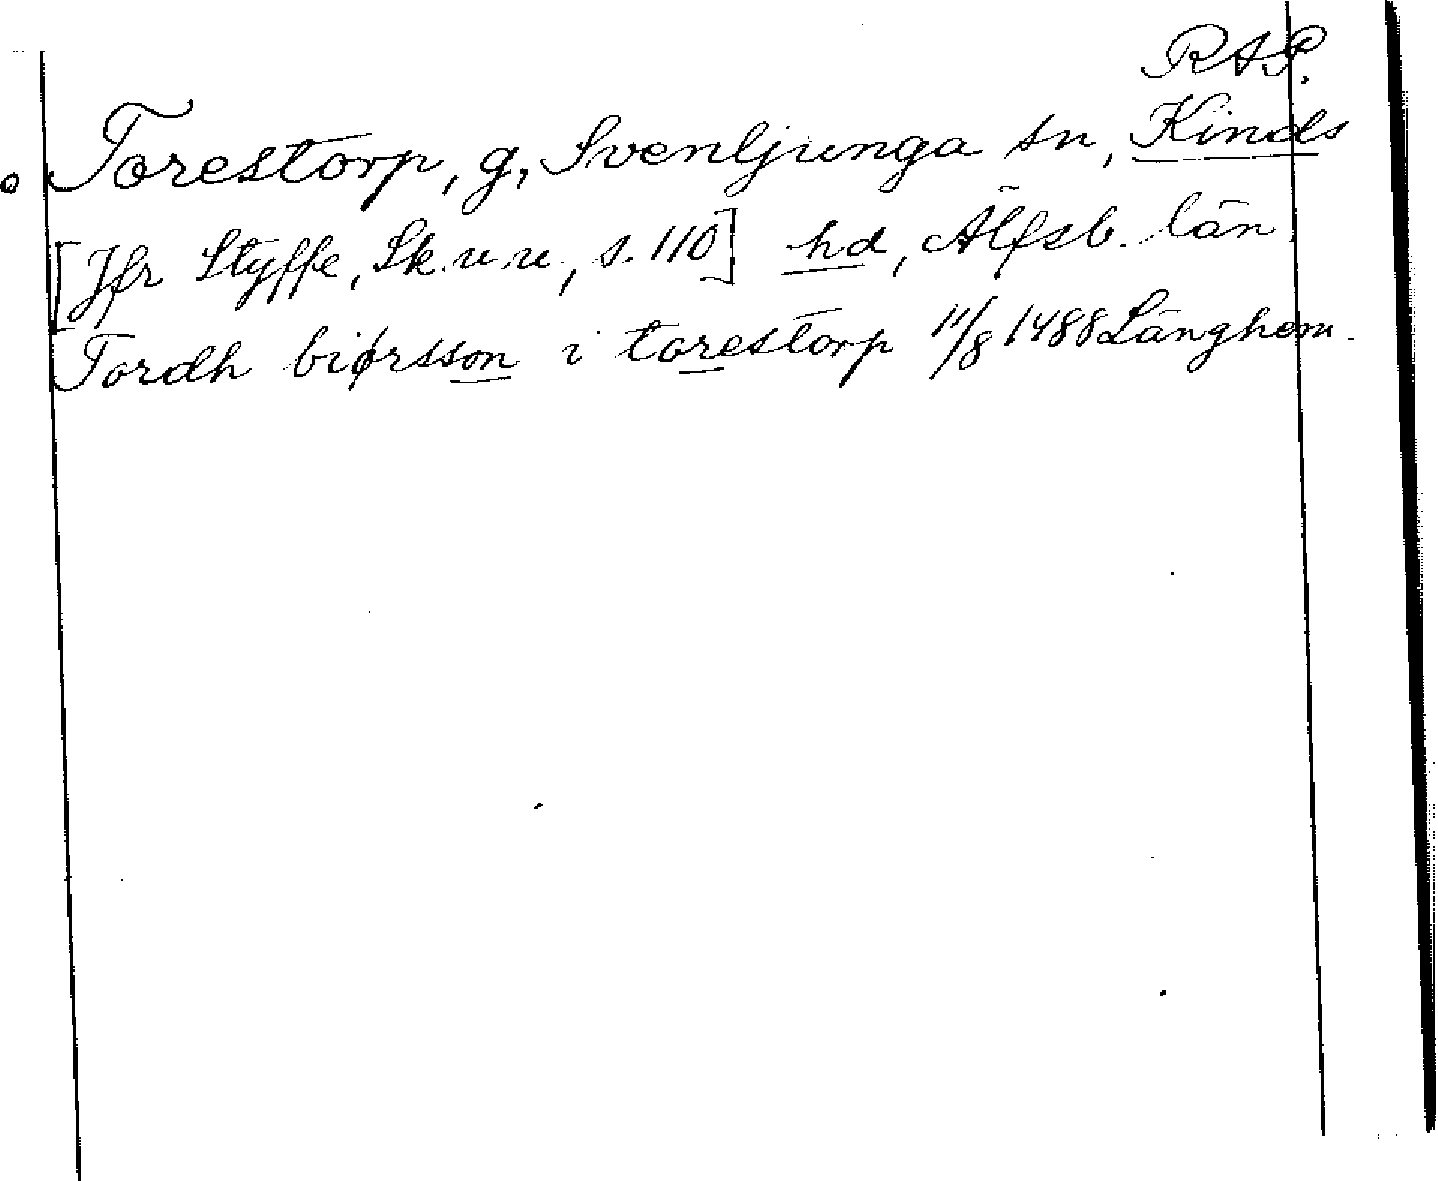 RAP.
Torestorp, g, Svenljunga sn, Kinds
[Jfr Styffe, Sk. u. u., s. 110] hd, Älfsb. län
Tordh biørsson i torestorp 11/8 1488 Länghem.